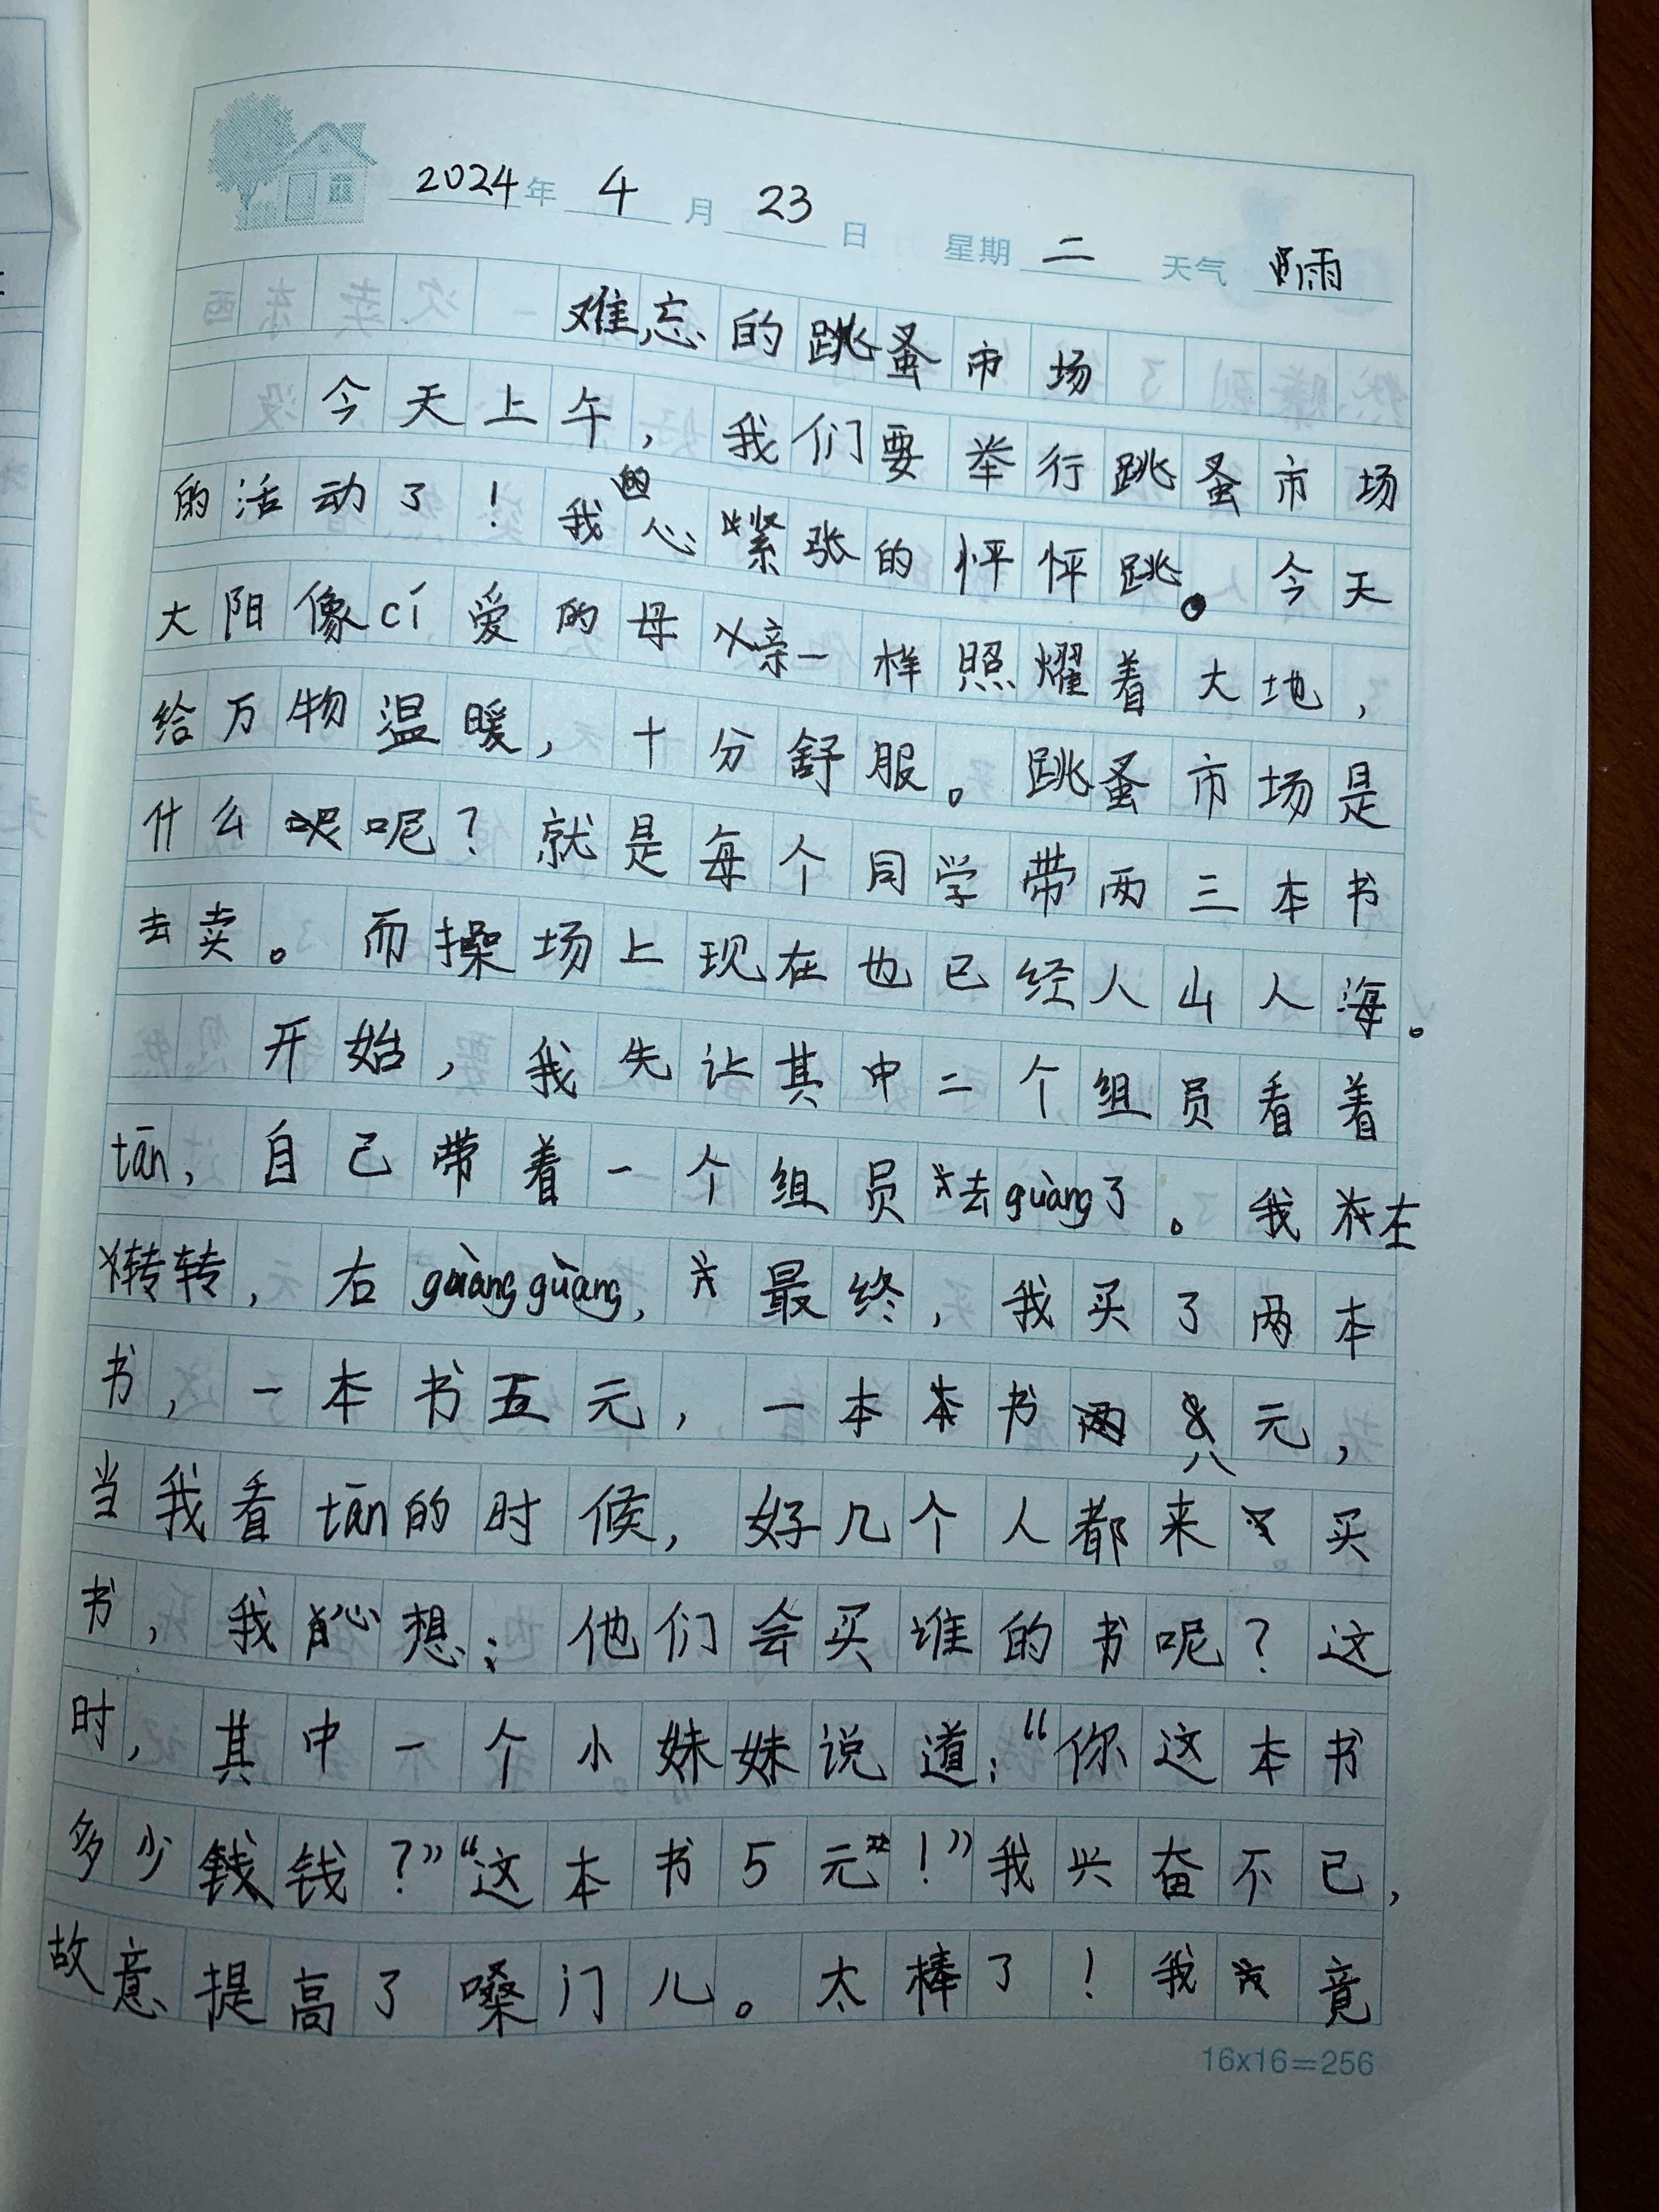 2024年 4月 23日 星期 二 天气 雨
难忘的跳蚤市场
今天上午，我们要举行跳蚤市场
的活动了！我的心紧张的怦怦跳。今天
大阳像cí爱的母亲一样照耀着大地，
给万物温暖，十分舒服。跳蚤市场是
什么呢？就是每个同学带两三本书
去卖。而操场上现在也已经人山人海。
开始，我先让其中二个组员看着
tān，自己带着一个组员去guàng了。我左
转转，右guàngguàng，最终，我买了两本
书，一本书五元，一本书八元，
当我看tān的时候，好几个人都来买
书，我心想：他们会买谁的书呢？这
时，其中一个小妹妹说道：“你这本书
多少钱？”“这本书5元！”我兴奋不已，
故意提高了嗓门儿。太棒了！我竟
16x16=256